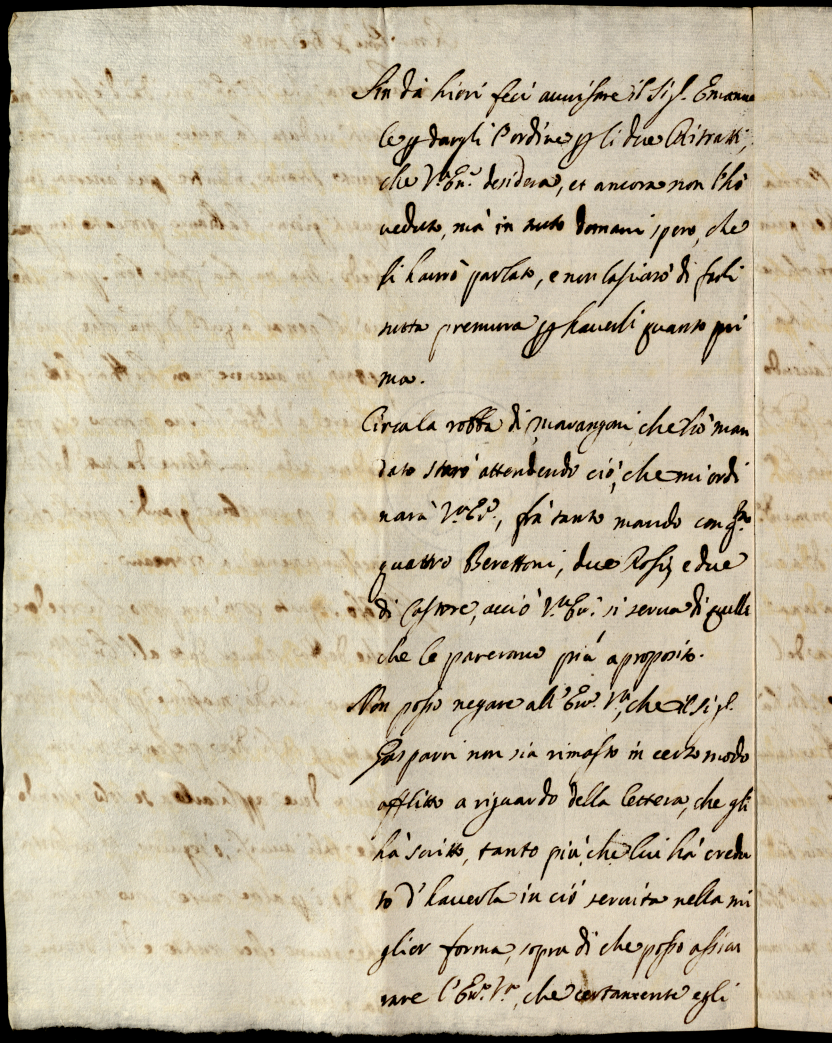 Sin da hieri feci avvisare il Sig.r Emanue
le p dargli l'ordine p li due Ritratti,
che V.ra Em.a desidera, et ancora non l'hò
veduto, mà in tutto domani spero, che
li haverò parlato, e non lasciarò di farli
tutta premura p haverli quanto pri
ma.
Circa la robba di marangoni che hò man
dato starò attendendo ciò, che mi ordi
narà V.ra Em.a, frà tanto mando con
quattro Berettoni, due Rossi, e due
di Castore, acciò V.ra Em.a si serva di quelli
che le pareranno più a proposito.
Non posso negare all'Em.a V.ra, che il Sig.r
Gasparri non sia rimasto in certo modo
afflitto a riguardo della lettera, che gli
hà scritto, tanto più, che lui hà credu
to d'haverla in ciò servita nella mi
glior forma, sopra di che posso assicu
rare l'Em.a V.ra, che certamente egli